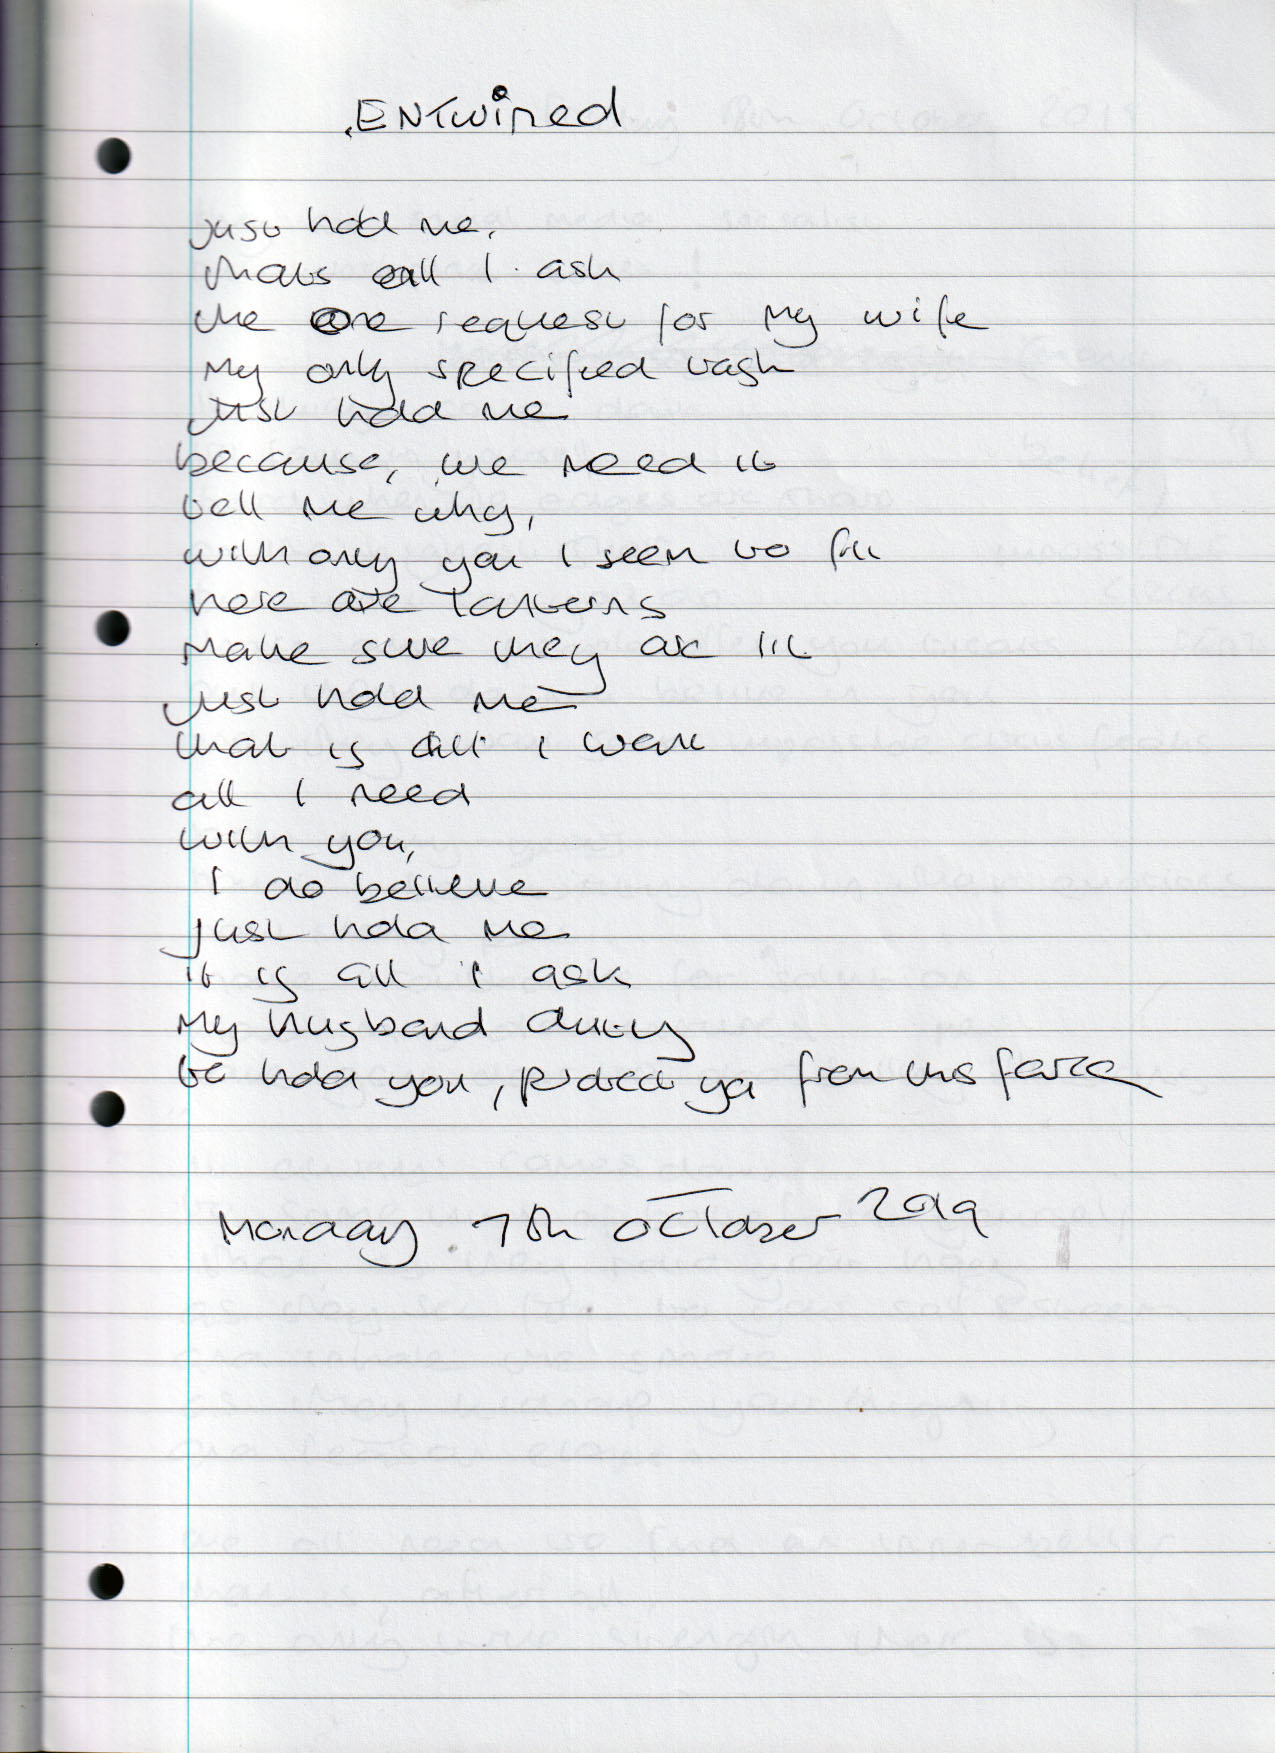 ENTwined
Just hold me,
thats all I ask
the one request for my wife
My only specified task
Just hold me
because, we need it
tell me why,
with only you I seem to fit
here are lanterns
Make sure they are lit
Just hold me
that is all I want
all I need
with you,
I do believe
Just hold me
it is all I ask
My husband duty
to hold you, protect ya from this farce
Monday 7th October 2019